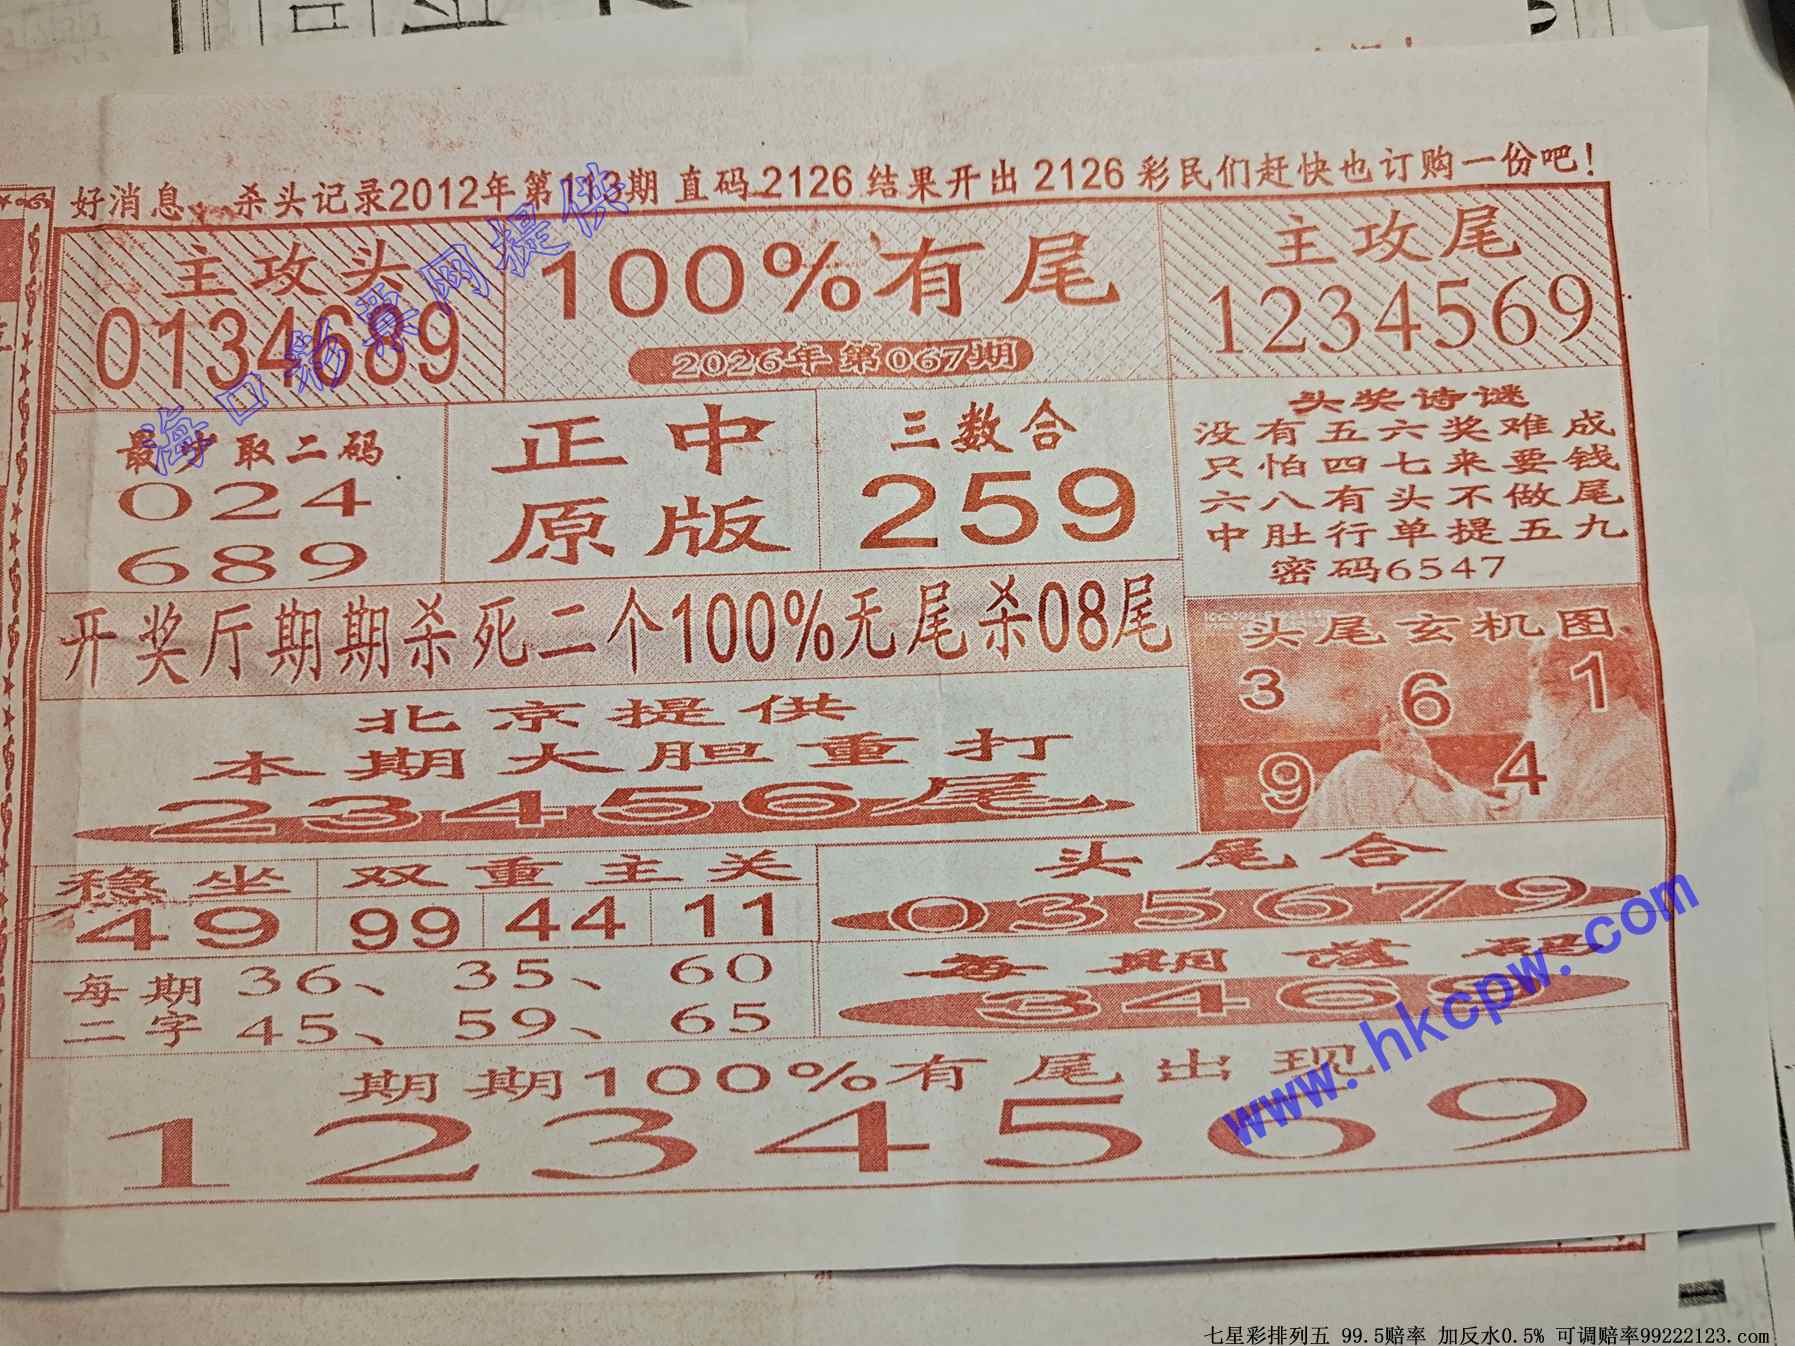 好消息、杀头记录2012年第113期 直码2126 结果开出 2126 彩民们赶快也订购一份吧！
主攻头
0134689
100%有尾
2026年第067期
主攻尾
1234569
最少取二码
024
689
正中
原版
三数合
259
头奖诗谜
没有五六奖难成
只怕四七来要钱
六八有头不做尾
中肚行单提五九
密码6547
开奖厅期期杀死二个100%无尾杀08尾
头尾玄机图
3 6 1
9 4
北京提供
本期大胆重打
23456尾
稳坐
49
双重主关
99 44 11
头尾合
035679
每期
二字
36、 35、 60
45、 59、 65
每期落码
3469
期期100%有尾出现
1234569
海口彩票网提供
www.hkcpw.com
七星彩排列五 99.5赔率 加反水0.5% 可调赔率99222123.com